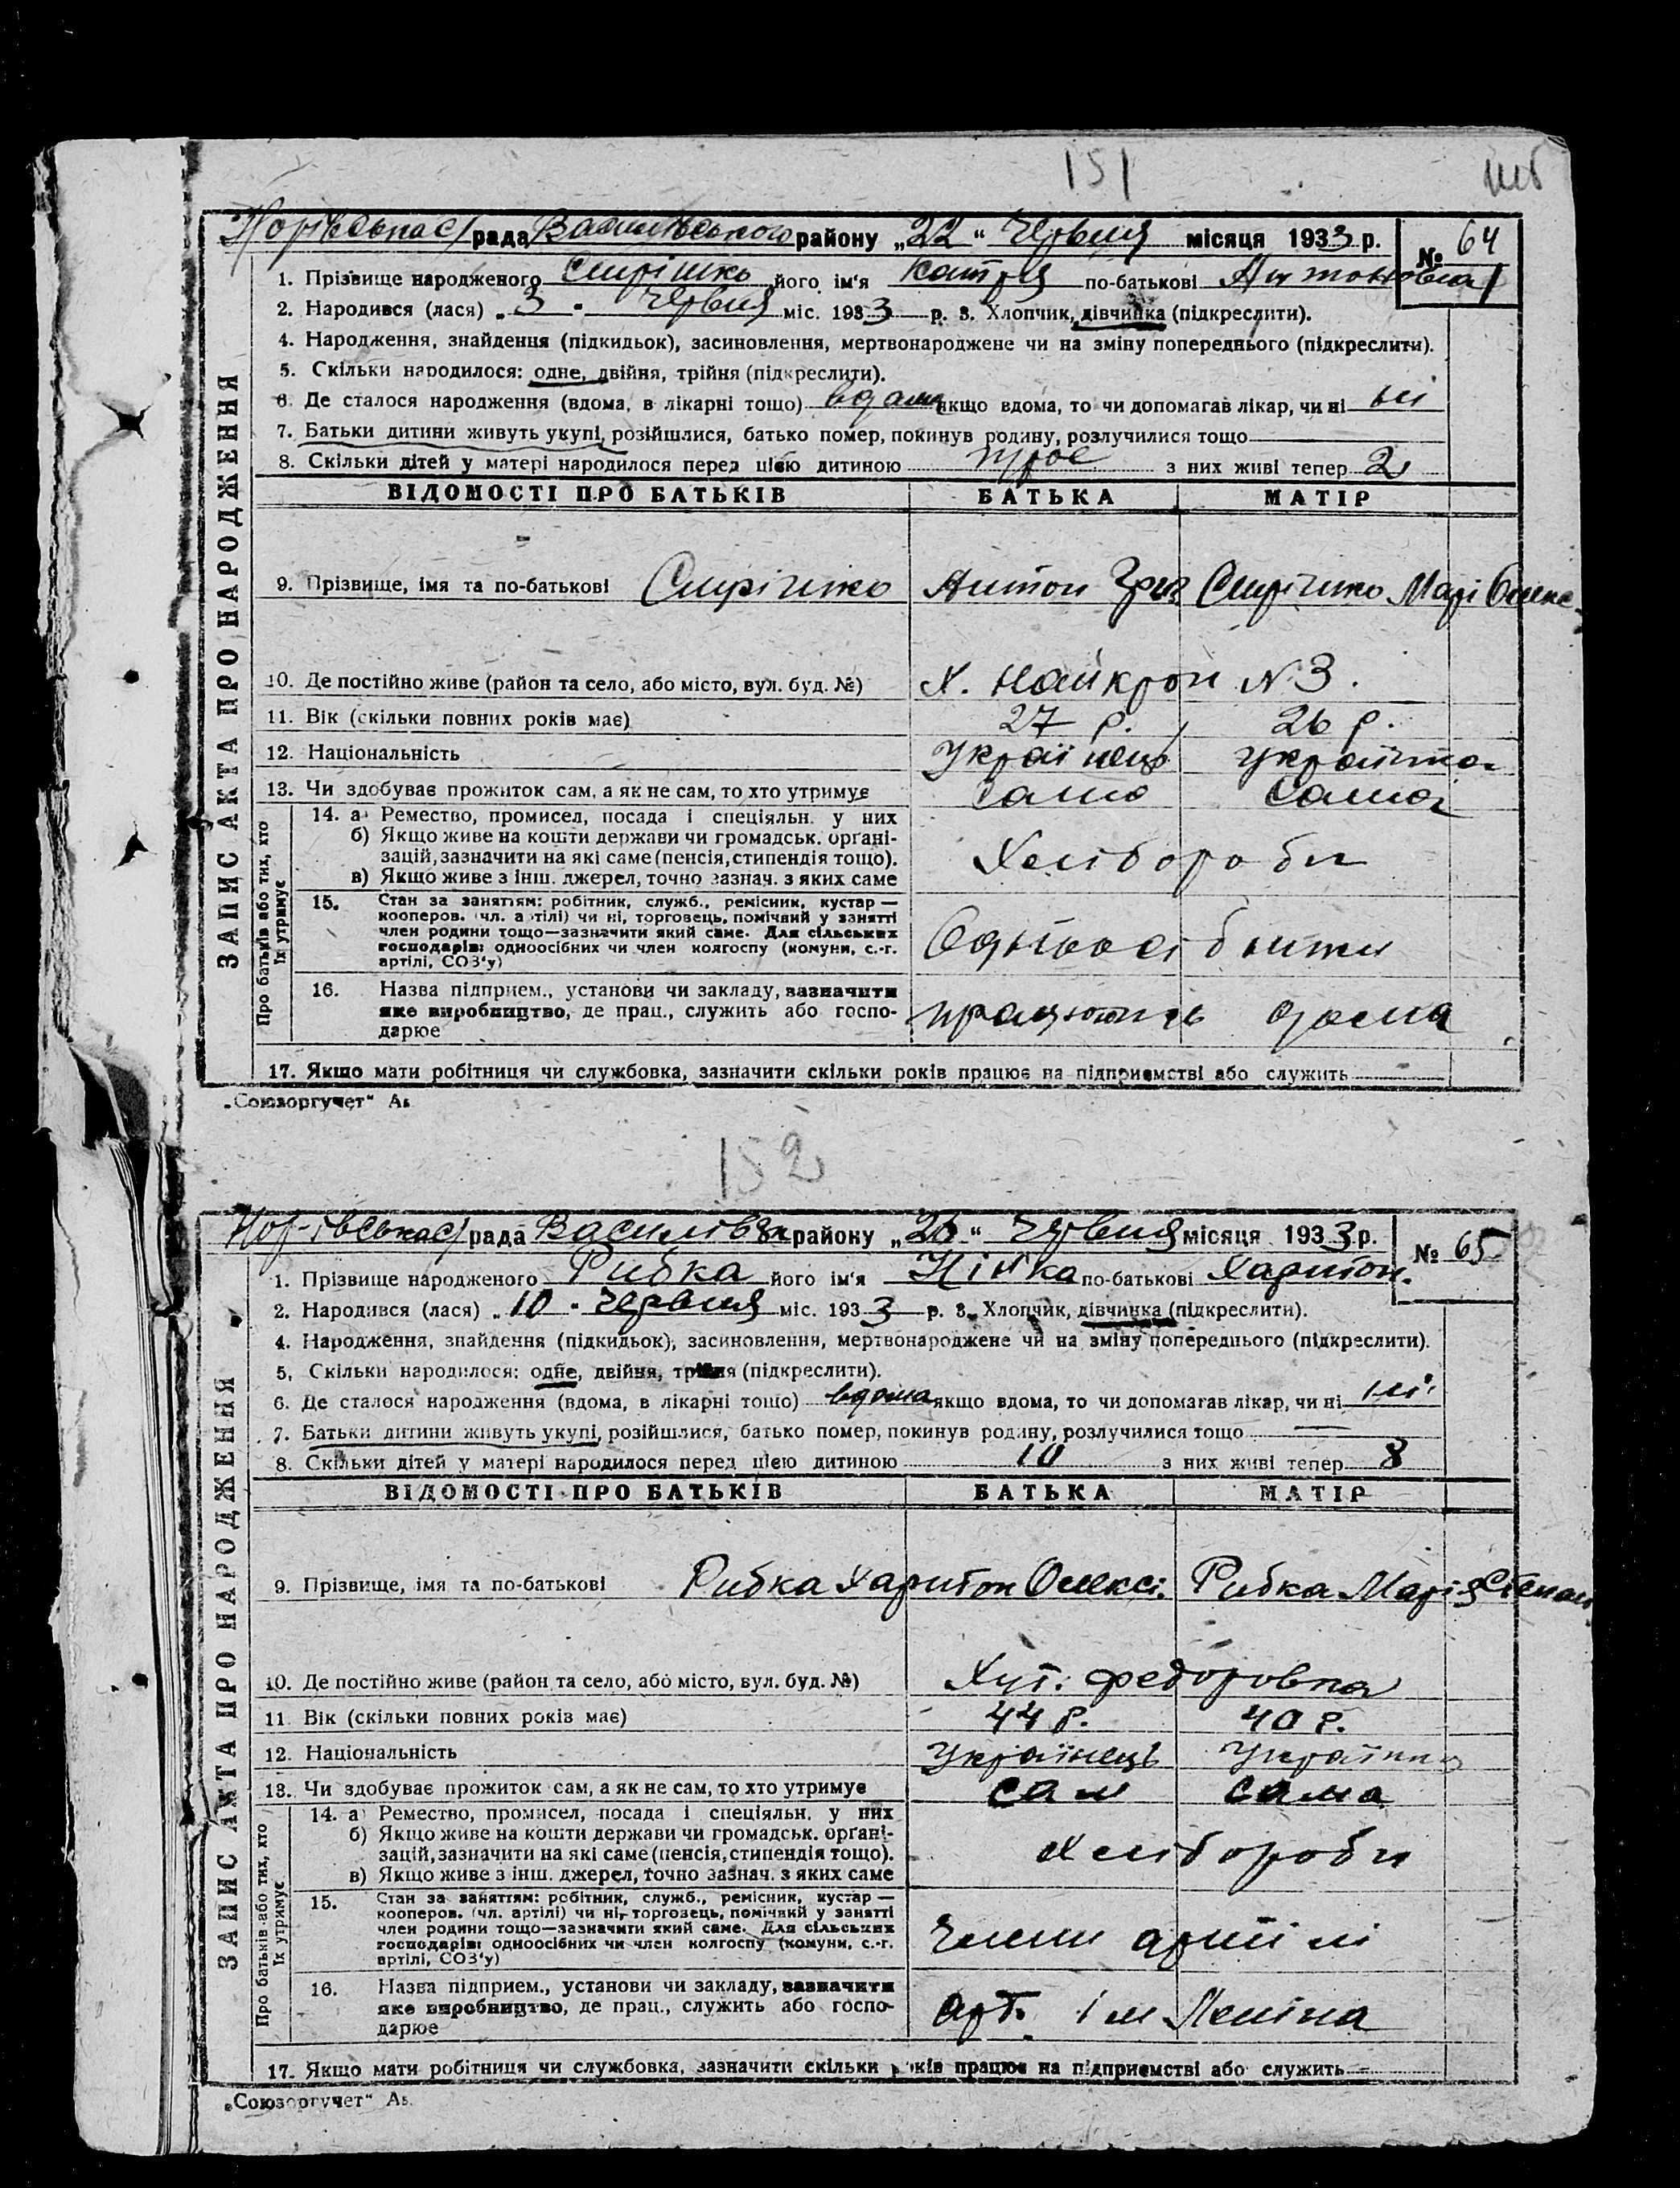 151
рада району „22“ Червня місяця 1933 р. № 64
1. Прізвище народженого його ім'я Катря по-батькові Антоновна
2. Народився (лася) „3 - Червня міс. 1933 р. 3. Хлопчик, дівчинка (підкреслити).
4. Народження, знайдення (підкидьок), засиновлення, мертвонароджене чи на зміну попереднього (підкреслити).
5. Скільки народилося: одне, двійня, трійня (підкреслити).
6. Де сталося народження (вдома, в лікарні тощо) вдома якщо вдома, то чи допомагав лікар, чи ні ні
7. Батьки дитини живуть укупі, розійшлися, батько помер, покинув родину, розлучилися тощо
8. Скільки дітей у матері народилося перед цією дитиною троє з них живі тепер 2
ВІДОМОСТІ ПРО БАТЬКІВ БАТЬКА МАТІР
9. Прізвище, імя та по-батькові Антон Григ Марі Олекс
10. Де постійно живе (район та село, або місто, вул. буд. №) Х. Найкрон N 3.
11. Вік (скільки повних років має) 27 р. 26 р.
12. Національність Українець Українка
13. Чи здобуває прожиток сам, а як не сам, то хто утримує Сама
14. а) Ремество, промисел, посада і спеціяльн. у них
б) Якщо живе на кошти держави чи громадськ. орґані-
зацій, зазначити на які саме (пенсія, стипендія тощо). Хлібороби
в) Якщо живе з інш. джерел, точно зазнач. з яких саме
15. Стан за заняттям: робітник, служб., ремісник, кустар —
кооперов. (чл. артілі) чи ні, торговець, помічний у занятті
член родини тощо—зазначити який саме. Для сільських
господарів: одноосібних чи член колгоспу (комуни, с.-г. Одноосібники
артілі, СОЗ'у)
16. Назва підприєм., установи чи закладу, зазначити
яке виробництво, де прац., служить або госпо- працюють дома
дарює
17. Якщо мати робітниця чи службовка, зазначити скільки років працює на підприємстві або служить
ЗАПИС АКТА ПРО НАРОДЖЕННЯ
Про батьків або тих, хто
їх утримує
„Союзоргучет“
152
рада району „26“ Червня місяця 1933 р. № 65
1. Прізвище народженого Рибка його ім'я Нінка по-батькові Харитон.
2. Народився (лася) „10 - Червня міс. 1933 р. 3. Хлопчик, дівчинка (підкреслити).
4. Народження, знайдення (підкидьок), засиновлення, мертвонароджене чи на зміну попереднього (підкреслити).
5. Скільки народилося: одне, двійня, трійня (підкреслити).
6. Де сталося народження (вдома, в лікарні тощо) вдома якщо вдома, то чи допомагав лікар, чи ні ні
7. Батьки дитини живуть укупі, розійшлися, батько помер, покинув родину, розлучилися тощо —
8. Скільки дітей у матері народилося перед цією дитиною 10 з них живі тепер 8
ВІДОМОСТІ ПРО БАТЬКІВ БАТЬКА МАТІР
9. Прізвище, імя та по-батькові Рибка Харитон Олексі. Рибка Марія Степан
10. Де постійно живе (район та село, або місто, вул. буд. №) Хут. Федоровка
11. Вік (скільки повних років має) 44 р. 40 р.
12. Національність Українець Українка
13. Чи здобуває прожиток сам, а як не сам, то хто утримує сам сама
14. а) Ремество, промисел, посада і спеціяльн. у них
б) Якщо живе на кошти держави чи громадськ. орґані-
зацій, зазначити на які саме (пенсія, стипендія тощо). Хлібороби
в) Якщо живе з інш. джерел, точно зазнач. з яких саме
15. Стан за заняттям: робітник, служб., ремісник, кустар —
кооперов. (чл. артілі) чи ні, торговець, помічний у занятті
член родини тощо—зазначити який саме. Для сільських
господарів: одноосібних чи член колгоспу (комуни, с.-г. Члени артілі
артілі, СОЗ'у)
16. Назва підприєм., установи чи закладу, зазначити
яке виробництво, де прац., служить або госпо- арт. ім Леніна
дарює
17. Якщо мати робітниця чи службовка, зазначити скільки років працює на підприємстві або служить
ЗАПИС АКТА ПРО НАРОДЖЕННЯ
Про батьків або тих, хто
їх утримує
„Союзоргучет“